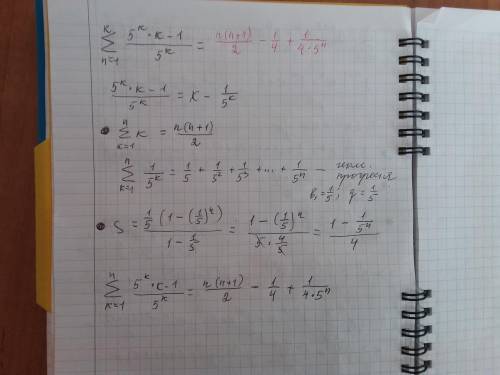 \sum_{n=1}^{k} \frac{5^k \cdot k - 1}{5^k} = \frac{n(n+1)}{2} - \frac{1}{4} + \frac{1}{4 \cdot 5^n}
\frac{5^k \cdot k - 1}{5^k} = k - \frac{1}{5^k}
• \sum_{k=1}^{n} k = \frac{n(n+1)}{2}
\sum_{k=1}^{n} \frac{1}{5^k} = \frac{1}{5} + \frac{1}{5^2} + \frac{1}{5^3} + ... + \frac{1}{5^n} - геом. прогрессия
b_1 = \frac{1}{5}; q = \frac{1}{5}
• S = \frac{\frac{1}{5}(1 - (\frac{1}{5})^n)}{1 - \frac{1}{5}} = \frac{1 - (\frac{1}{5})^n}{5 \cdot \frac{4}{5}} = \frac{1 - \frac{1}{5^n}}{4}
\sum_{k=1}^{n} \frac{5^k \cdot k - 1}{5^k} = \frac{n(n+1)}{2} - \frac{1}{4} + \frac{1}{4 \cdot 5^n}